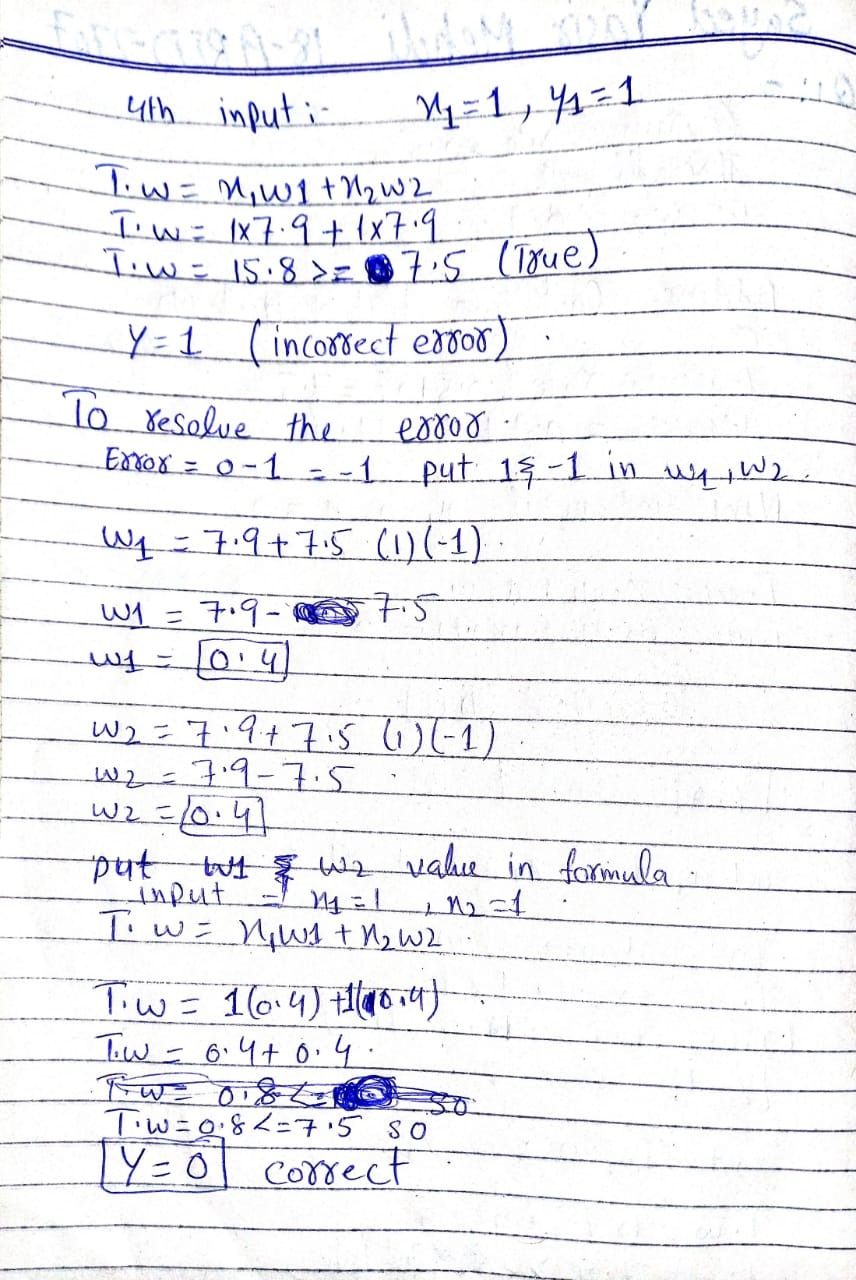 4th input :- x1=1, y1=1
T.w = x1w1 + x2w2
T.w = 1x7.9 + 1x7.9
T.w = 15.8 >= 7.5 (True)
Y=1 (incorrect error).
To resolve the error.
Error = 0-1 = -1 put 1 & -1 in w1, w2.
w1 = 7.9+7.5 (1)(-1).
w1 = 7.9- 7.5
w1 = 0.4
w2 = 7.9+7.5 (1)(-1).
w2 = 7.9-7.5.
w2 = 0.4
put w1 & w2 value in formula
input = x1=1, x2=1.
T.w = x1w1 + x2w2
T.w = 1(0.4) +1(0.4)
T.w = 0.4+0.4.
T.w = 0.8<= so
T.w=0.8<=7.5 so
Y=0 correct